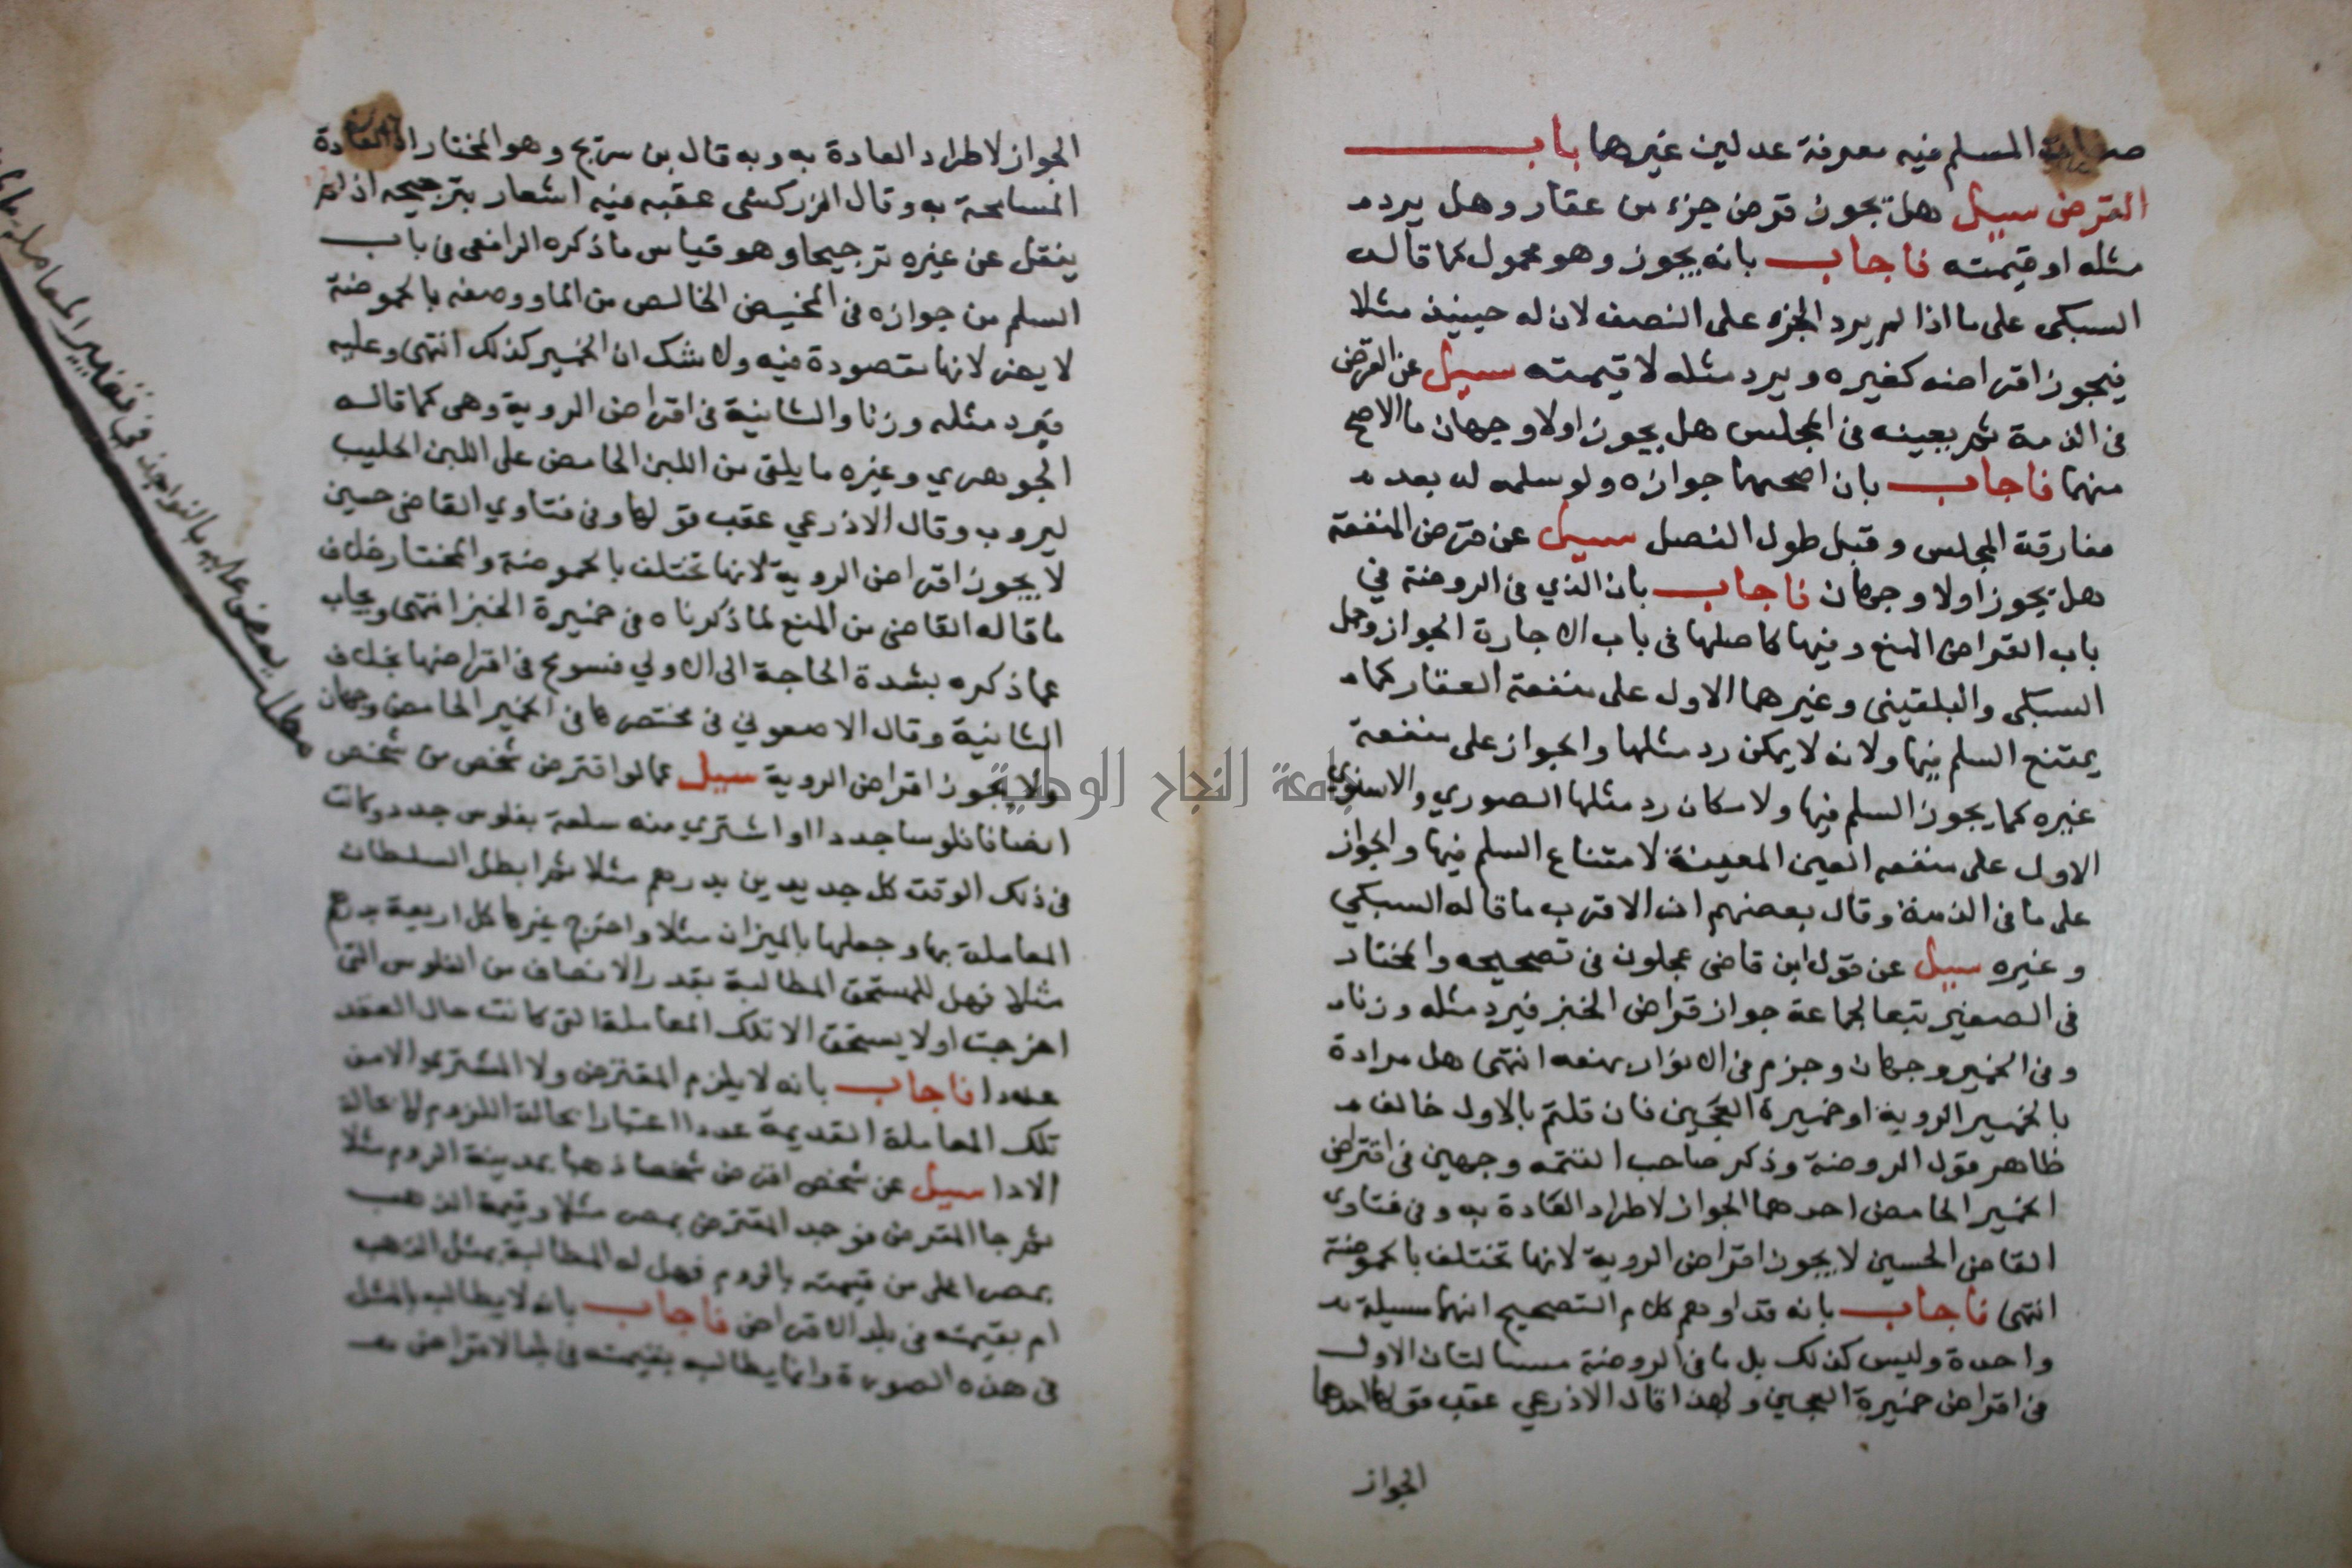 صفات المسلم فيه معرفة عدلين غيرهما باب
القرض سييل هل يجوز قرض جزء من عقار وهل يرد
مثله او قيمته فاجاب بانه يجوز وهو محمول كما قاله
السبكى على ما اذا لم يرد الجزء على النصف لان له حينيذ مثلا
فيجوز اقراضه كغيره ويرد مثله لا قيمته سييل عن القرض
فى الذمة ثم يعينه فى المجلس هل يجوز اولا وجهان ما الاصح
منهما فاجاب بان اصحهما جوازه ولو سلمه له بعد
مفارقة المجلس وقبل طول الفصل سييل عن قرض المنفعة
هل يجوز اولا وجهان فاجاب بان الذي فى الروضة في
باب القراض المنع وفيها كاصلها فى باب الاجارة الجواز وحمل
السبكى والبلقينى وغيرهما الاول على منفعة العقار كما
يمتنع السلم فيها ولانه لا يمكن رد مثلها والجواز على منفعة
غيره كما يجوز السلم فيها ولامكان رد مثلها الصوري والاسنوي
الاول على منفعه العين المعينة لامتناع السلم فيها والجواز
على ما فى الذمة وقال بعضهم ان الاقرب ما قاله السبكي
وغيره سييل عن قول ابن قاضى عجلون فى تصحيحه والمختار
فى الصغير تبعا لجماعة جواز قراض الخبز فيرد مثله وزنا
وفى الخمير وجهان وجزم فى الانوار بمنعه انتهى هل مرادة
بالخمير الروبة او خميرة العجين فان قلتم بالاول خالف
ظاهر قول الروضة وذكر صاحب التتمه وجهين فى اقتراض
الخمير الحامض احدهما الجواز لاطراد العادة به وفى فتاوى
القاضى الحسين لا يجوز اقراض الروبة لانها تختلف بالحموضة
انتهى فاجاب بانه قد اوهم كلام التصحيح انهما مسيلة
واحدة وليس كذلك بل ما فى الروضة مسالتان الاولى
فى اقراض خميرة العجين ولهذا قال الاذرعي عقب قولها احدهما
الجواز
الجواز لاطراد العادة به وبه قال بن سريج وهو المختار اذ العادة
المسامحة به وقال الزركشى عقبه فيه اشعار بترجيحه اذ لم
ينقل عن غيره ترجيحا وهو قياس ما ذكره الرافعى فى باب
السلم من جوازه فى المخيض الخالص من الما ووصفه بالحموضة
لا يضر لانها مقصودة فيه ولا شك ان الخمير كذلك انتهى وعليه
فيرد مثله وزنا والثانية فى اقراض الروبة وهى كما قاله
الجوهري وغيره ما يلقى من اللبن الحامض على اللبن الحليب
ليروب وقال الاذرعي عقب قولها وفى فتاوي القاضى حسين
لا يجوز اقراض الروبة لانها تختلف بالحموضة والمختار خلاف
ما قاله القاضى من المنع لما ذكرناه فى خميرة الخبز انتهى ويجاب
عما ذكره بشدة الحاجة الى الاولي فسومح فى اقراضها بخلاف
الثانية وقال الاصفوني فى مختصرها فى الخمير الحامض وجهان
ولا يجوز اقراض الروبة سييل عما لو اقترض شخص من شخص
انصافا فلوسا جددا او اشتري منه سلعة بفلوس جدد وكانت
فى ذلك الوقت كل جديدين بدرهم مثلا ثم ابطل السلطان
المعاملة بها وجعلها بالميزان مثلا واخرج غيرها كل اربعة بدرهم
مثلا فهل للمستحق المطالبة بقدر الانصاف من الفلوس التى
اخرجت اولا يستحق الا تلك المعاملة التى كانت حال العقد
عددا فاجاب بانه لا يلزم المقترض ولا المشتري الا من
تلك المعاملة القديمة عددا اعتبارا بحالة اللزوم لا بحالة
الادا سييل عن شخص اقرض شخصا ذهبا بمدينة الروم مثلا
ثم جا المقرض فوجد المقترض بمصر مثلا وقيمة الذهب
بمصر اعلى من قيمته بالروم فهل له المطالبة بمثل الذهب
ام بقيمته فى بلد الاقراض فاجاب بانه لا يطالبه بالمثل
فى هذه الصورة وانما يطالبه بقيمته فى بلد الاقراض
مطلب يعض عليه بالنواجذ في تغيير المعاملة
جامعة النجاح الوطنية